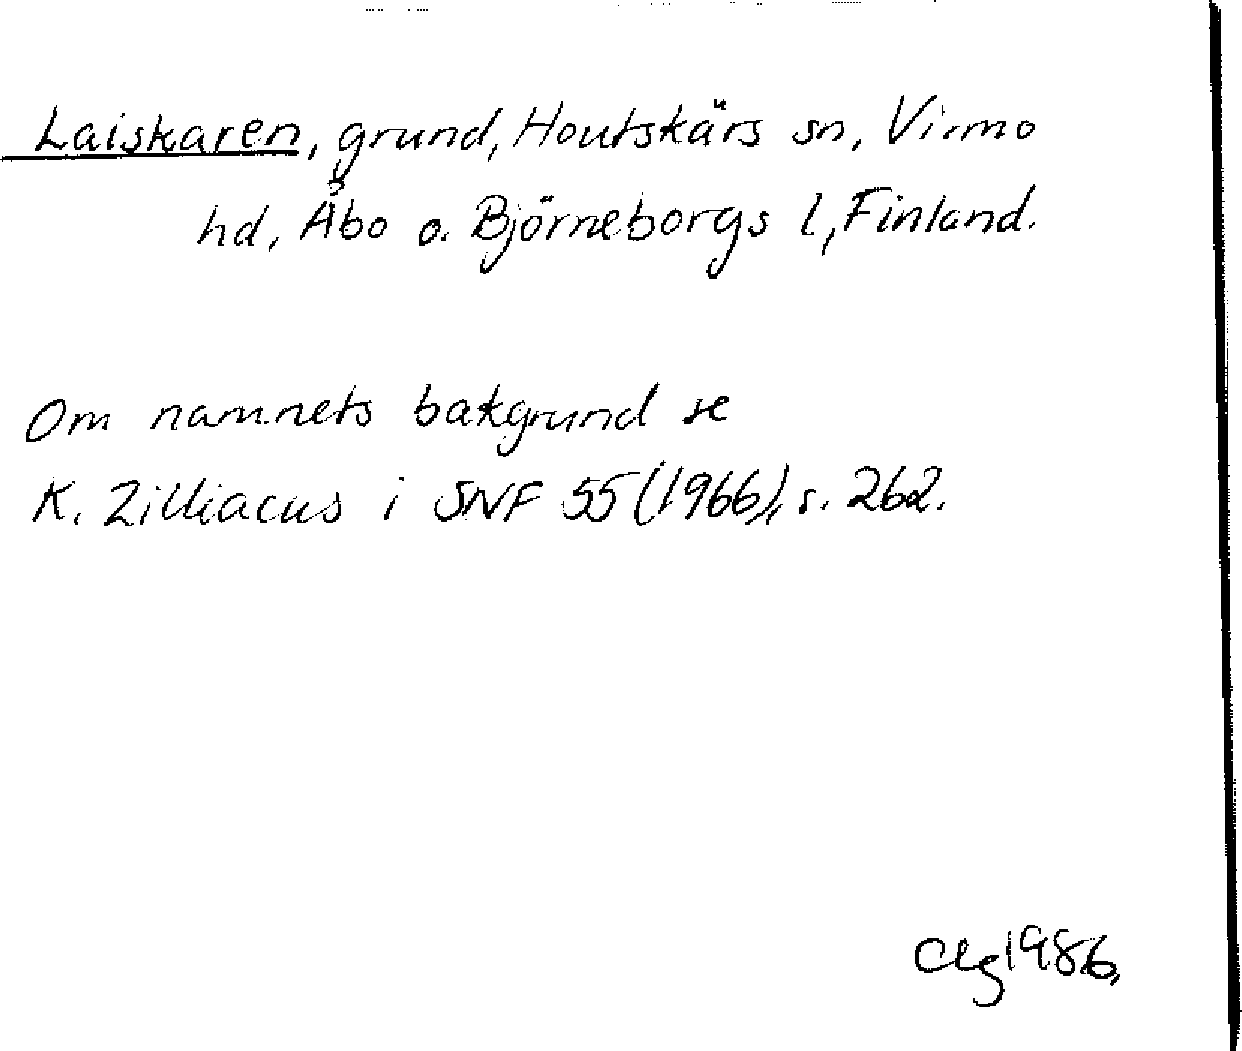 Laiskaren, grund, Houtskärs sn, Virmo
hd, Åbo o. Björneborgs l, Finland.
Om namnets bakgrund se
K. Zilliacus i SNF 55 (1966), s. 262.
1986